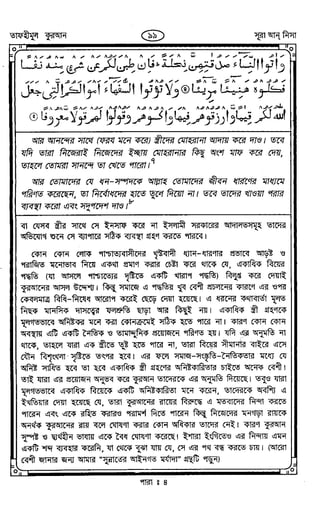 তাফহীমুল কুরআন
৯৯
সূরা আন নিসা
وَآتُوا النِّسَاءَ صَدُقَاتِهِنَّ نِحْلَةً فَإِن طِبْنَ لَكُمْ عَن شَيْءٍ مِّنْهُ نَفْسًا
فَكُلُوهُ هَنِيئًا مَّرِيئًا ④ وَلَا تُؤْتُوا السُّفَهَاءَ أَمْوَالَكُمُ الَّتِي جَعَلَ
اللَّهُ لَكُمْ قِيَامًا وَارْزُقُوهُمْ فِيهَا وَاكْسُوهُمْ وَقُولُوا لَهُمْ قَوْلًا مَّعْرُوفًا ⑤
আর আনন্দের সাথে (ফরয মনে করে) স্ত্রীদের মোহরানা আদায় করে দাও। তবে
যদি তারা নিজেরাই নিজেদের ইচ্ছায় মোহরানার কিছু অংশ মাফ করে দেয়,
তাহলে তোমরা সানন্দে তা খেতে পারো।৭
আর তোমাদের যে ধন-সম্পদকে আল্লাহ তোমাদের জীবন ধারণের মাধ্যমে
পরিণত করেছেন, তা নির্বোধদের হাতে তুলে দিয়ো না। তবে তাদের খাওয়া পরার
ব্যবস্থা করো এবং সদুপদেশ দাও।৮
বা যেসব স্ত্রীর সাথে সে ইনসাফ করে না ইসলামী সরকারের আদালতসমূহ তাদের
অভিযোগ শুনে সে ব্যাপারে সঠিক ব্যবস্থা গ্রহণ করতে পারবে।
কোন কোন লোক পাশ্চাত্যবাসীদের খৃষ্টবাদী ধ্যান-ধারণার প্রভাবে আড়ষ্ট ও
পরাজিত মনোভাব নিয়ে একথা প্রমাণ করার চেষ্টা করে থাকে যে, একাধিক বিয়ের
পদ্ধতি (যা আসলে পাশ্চাত্যের দৃষ্টিতে একটি খারাপ পদ্ধতি) বিলুপ্ত করে দেয়াই
কুরআনের আসল উদ্দেশ্য। কিন্তু সমাজে এ পদ্ধতির খুব বেশী প্রচলনের কারণে এর ওপর
কেবলমাত্র বিধি-নিষেধ আরোপ করেই ছেড়ে দেয়া হয়েছে। এ ধরনের কথাবার্তা মূলত
নিছক মানসিক দাসত্বের ফলশ্রুতি ছাড়া আর কিছুই নয়। একাধিক স্ত্রী গ্রহণকে
মূলগতভাবে অনিষ্টকর মনে করা কোনক্রমেই সঠিক হতে পারে না। কারণ কোন কোন
অবস্থায় এটি একটি নৈতিক ও তামাদ্দুনিক প্রয়োজনে পরিণত হয়। যদি এর অনুমতি না
থাকে, তাহলে যারা এক স্ত্রীতে তুষ্ট হতে পারে না, তারা বিয়ের সীমানার বাইরে এসে
যৌন বিশৃংখলা সৃষ্টিতে তৎপর হবে। এর ফলে সমাজ-সংস্কৃতি-নৈতিকতার মধ্যে যে
অনিষ্ট সাধিত হবে তা হবে একাধিক স্ত্রী গ্রহণের অনিষ্টকারিতার চাইতে অনেক বেশী।
তাই যারা এর প্রয়োজন অনুভব করে কুরআন তাদেরকে এর অনুমতি দিয়েছে। তবুও যারা
মূলগতভাবে একাধিক বিয়েকে একটি অনিষ্টকারিতা মনে করেন, তাদেরকে অবশ্যি এ
ইখতিয়ার দেয়া হয়েছে যে, তারা কুরআনের রায়ের বিরুদ্ধে এ মতবাদের নিন্দা করতে
পারেন এবং একে রহিত করারও পরামর্শ দিতে পারেন কিন্তু নিজেদের মনগড়া রায়কে
অনর্থক কুরআনের রায় বলে ঘোষণা করার কোন অধিকার তাদের নেই। কারণ কুরআন
সুস্পষ্ট ও দ্ব্যর্থহীন ভাষায় একে বৈধ ঘোষণা করেছে। ইশারা ইংগিতেও এর নিন্দায় এমন
একটি শব্দ ব্যবহার করেনি, যা থেকে বুঝা যায় যে, সে এর পথ বন্ধ করতে চায়। (আরো
বেশী জানার জন্য আমার "সুন্নাতের আইনগত মর্যাদা" গ্রন্থটি পড়ুন)
পারা : ৪